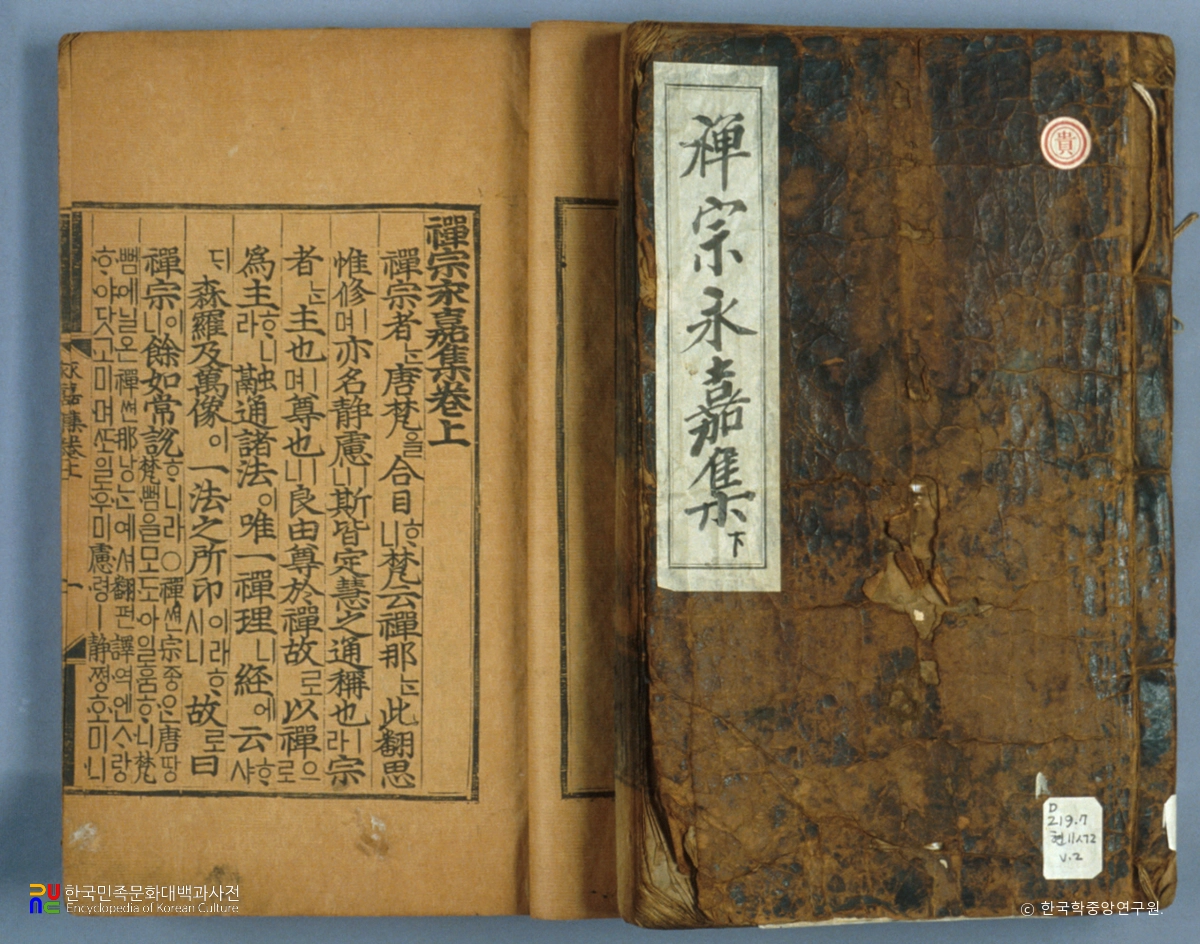 禪宗永嘉集 下
貴
D
219.7
현11ㅅ72
v.2
禪宗永嘉集卷上
禪宗者ᄂᆞᆫ唐梵을合目ᄒᆞ니梵云禪那ᄂᆞᆫ此翻思
惟修ㅣ며亦名静慮ㅣ니斯皆定慧之通稱也ㅣ라宗
者ᄂᆞᆫ主也ㅣ며尊也ㅣ니良由尊於禪故로以禪으로
爲主ᄒᆞ니라融通諸法이唯一禪理니經에云ᄒᆞ샤
ᄃᆡ森羅及萬像이一法之所印이라ᄒᆞ시니故로曰
禪宗이니餘如常說ᄒᆞ니라○禪쎤宗종ᄋᆞᆫ唐땅
梵뻠을모도아일훔ᄒᆞ니梵
뻠에닐온禪쎤那낭ᄂᆞᆫ예셔翻펀譯역엔ᄉᆞ랑
ᄒᆞ야닷고미며ᄯᅩ일후미慮령ㅣ静쪙호미니
永嘉集卷上
一
한국민족문화대백과사전
Encyclopedia of Korean Culture
© 한국학중앙연구원.